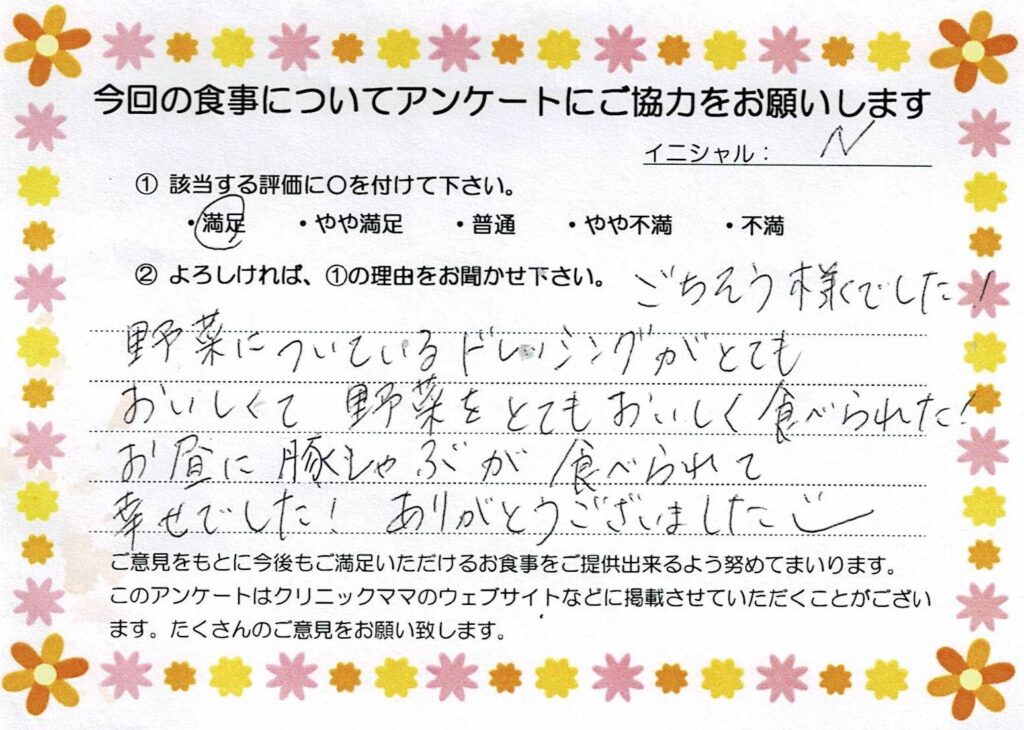 今回の食事についてアンケートにご協力をお願いします
イニシャル： N
① 該当する評価に〇を付けて下さい。
・満足 ・やや満足 ・普通 ・やや不満 ・不満
② よろしければ、①の理由をお聞かせ下さい。
ごちそう様でした！
野菜についているドレッシングがとても
おいしくて 野菜をとてもおいしく食べられた！
お昼に豚しゃぶが食べられて
幸せでした！ ありがとうございました
ご意見をもとに今後もご満足いただけるお食事をご提供出来るよう努めてまいります。
このアンケートはクリニックママのウェブサイトなどに掲載させていただくことがござい
ます。たくさんのご意見をお願い致します。